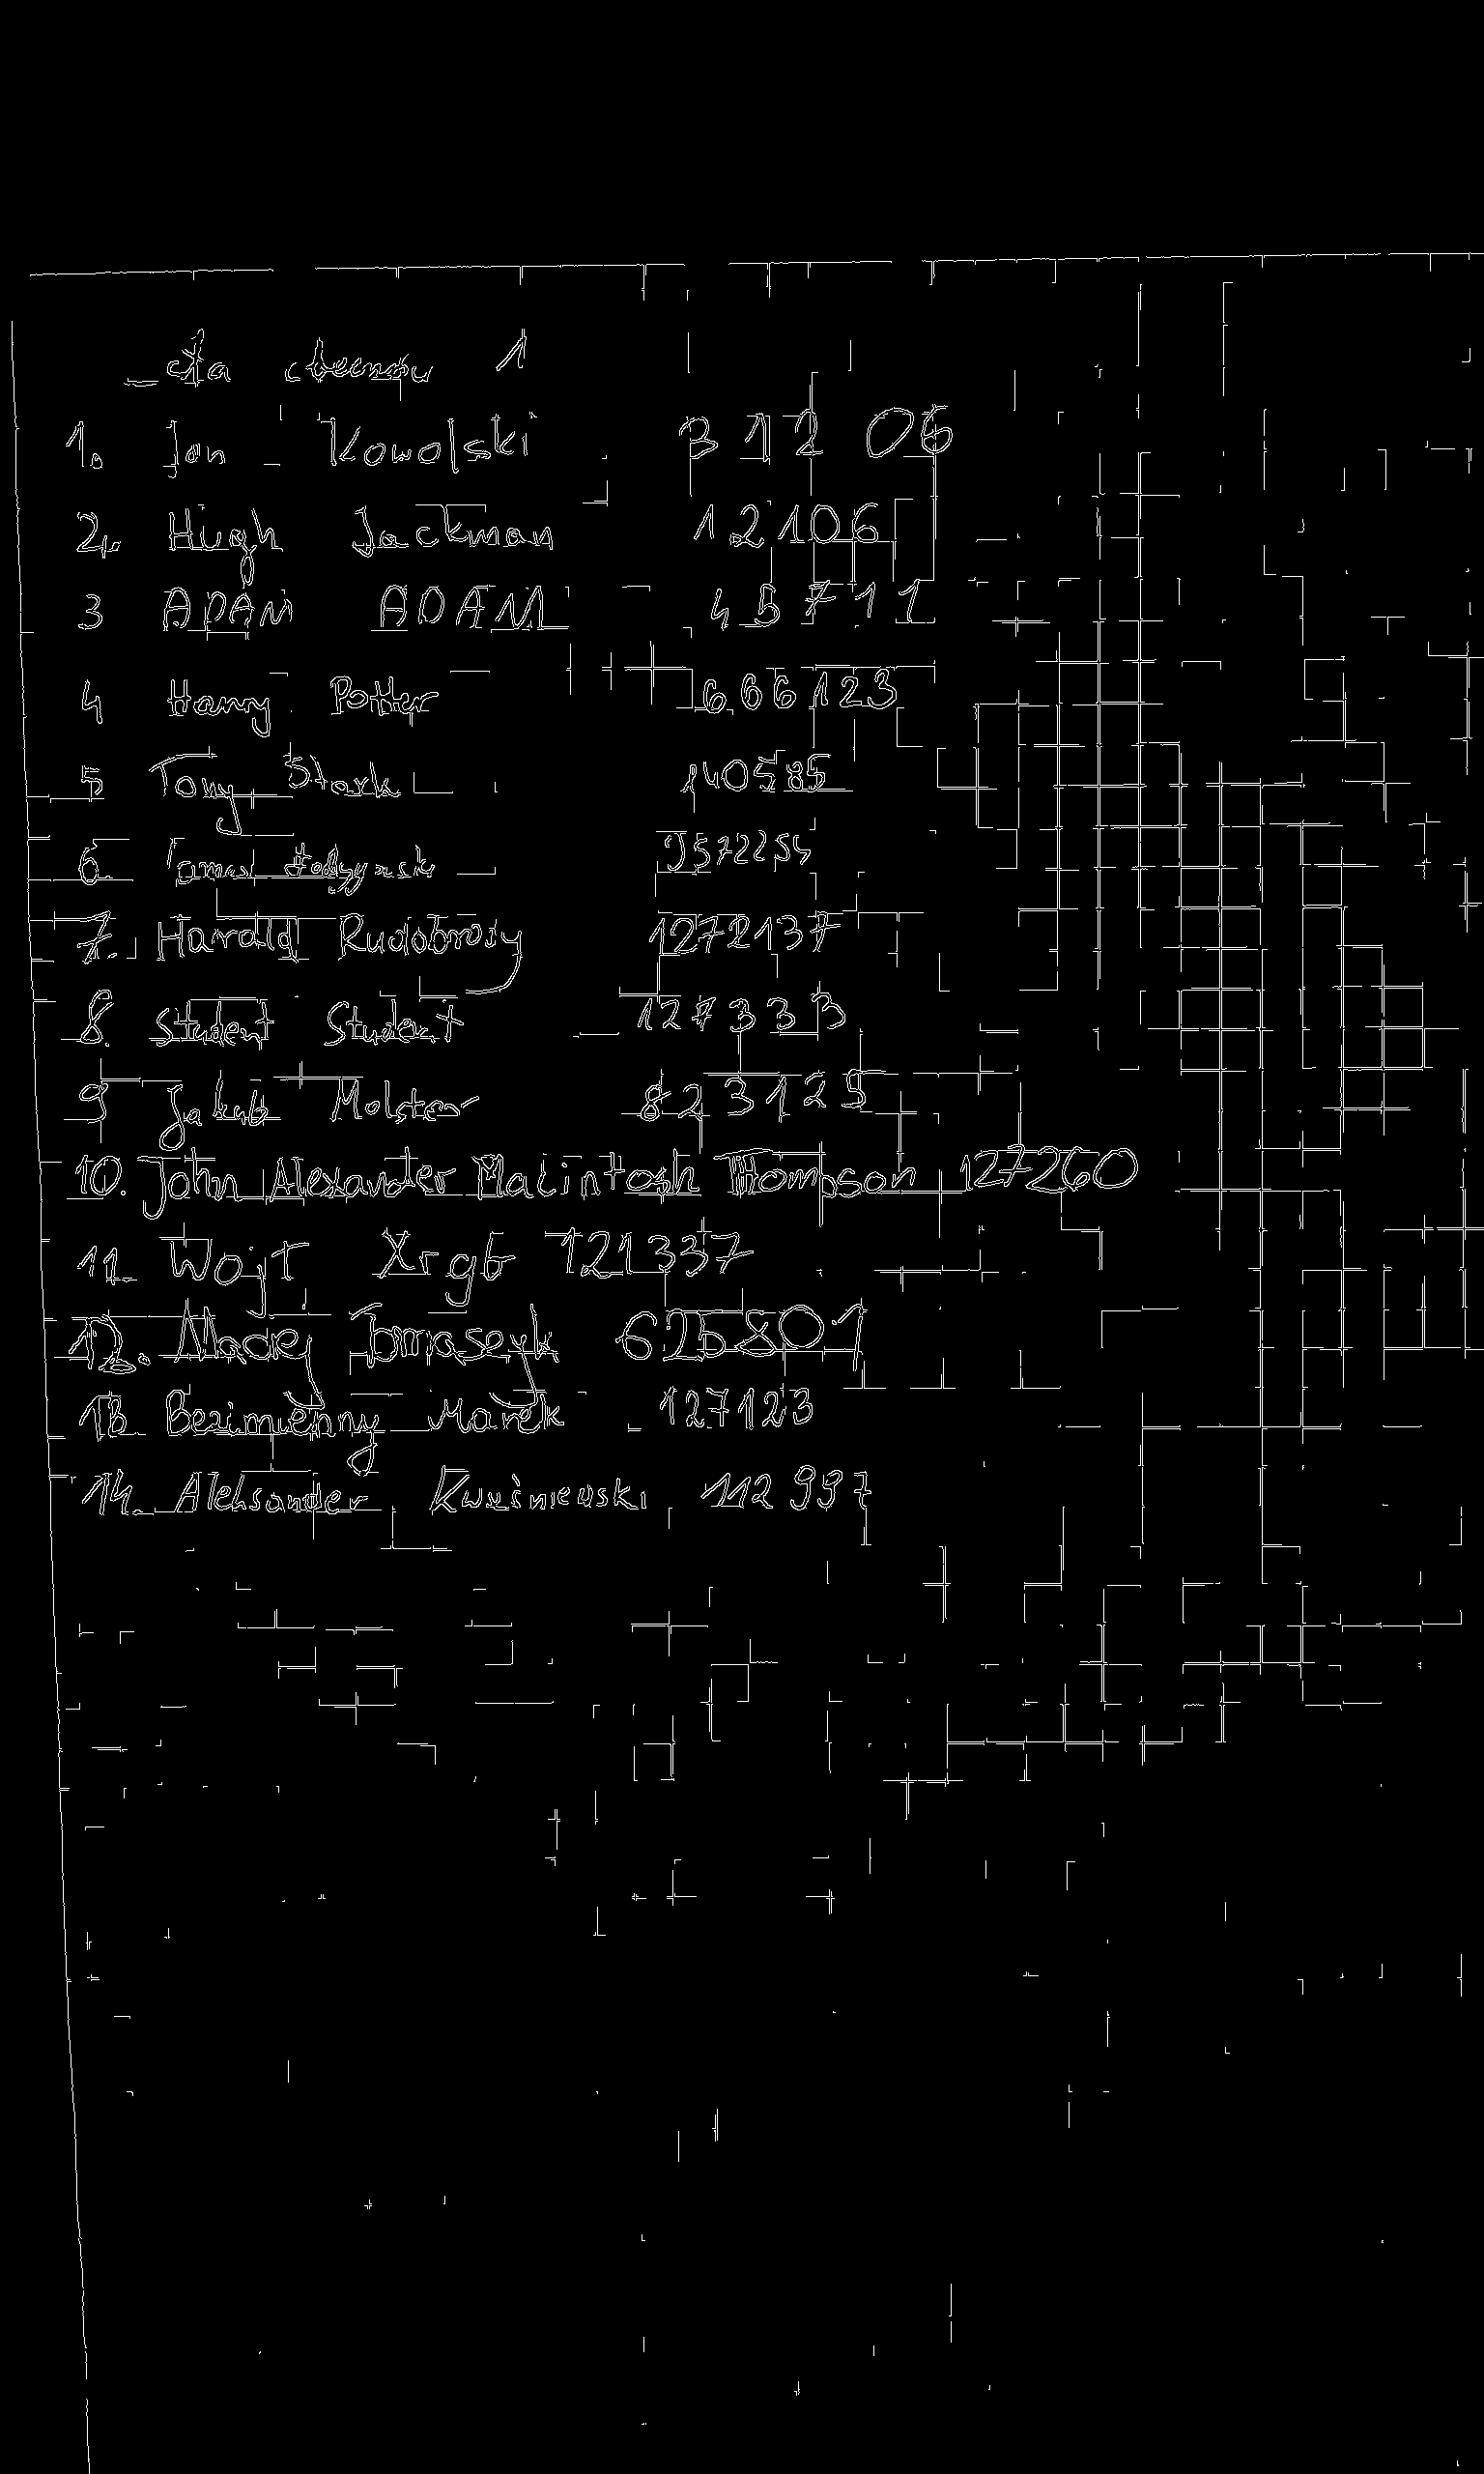 1
1. Jan Kowalski 31206
2. Hugh Jackman 12106
3 ADAM ADAM 45711
4 Harry Potter 666123
5 Tony Stark 140585
6. Tomasz
7. Harald Rudobrody 1272137
8. Student Student 127333
9 Jakub Molster 823129
10. John Alexander Macintosh Thompson 127260
11. Wojt Xrgb 121337
12. Maciej Tomaszyk 625801
13. Bezimienny Marek 127123
14. Aleksander Kwaśniewski 112997